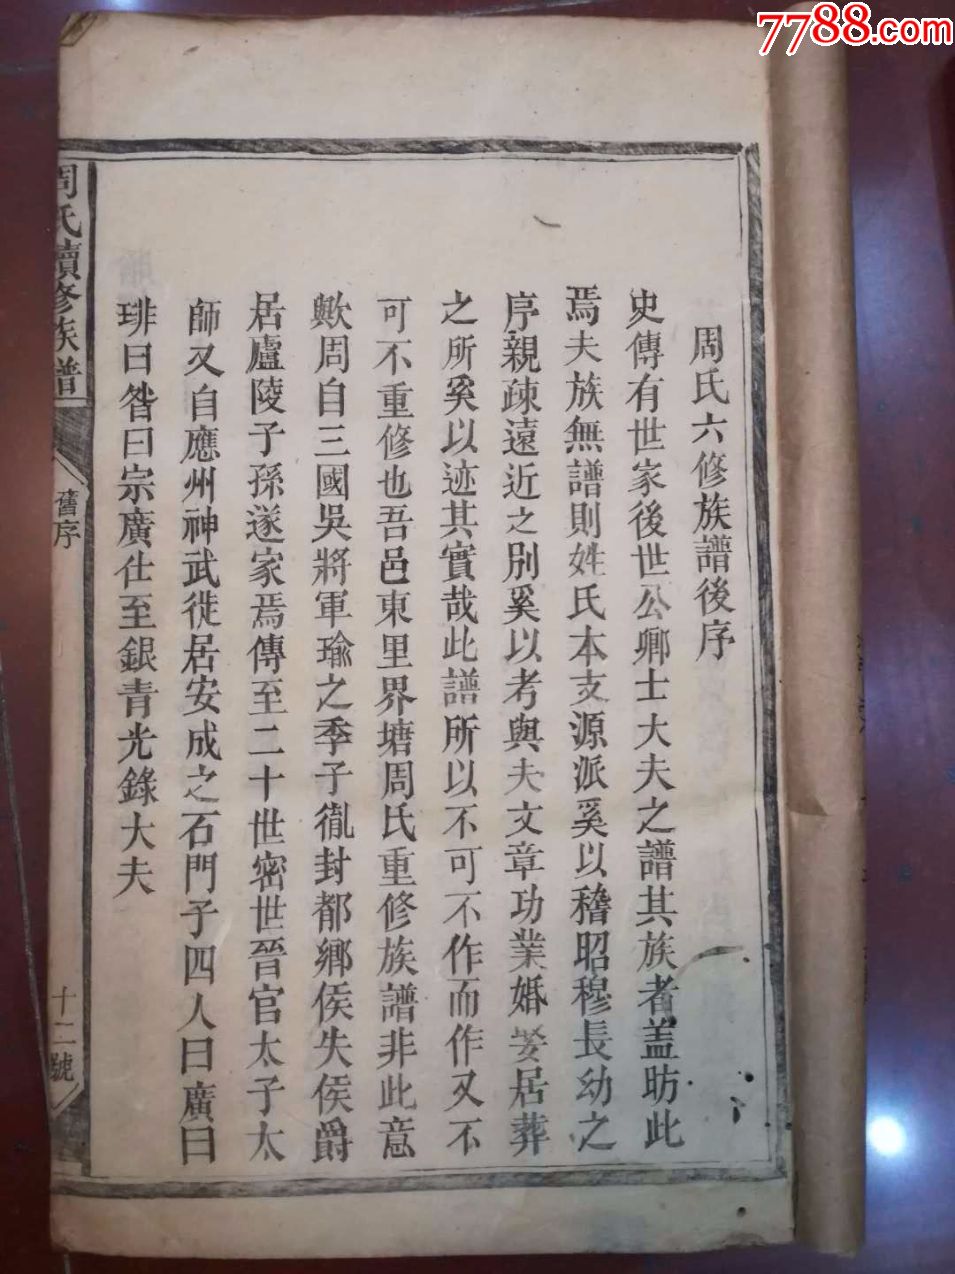 7788.com
周氏六修族譜後序
史傳有世家後世公卿士大夫之譜其族者蓋昉此
焉夫族無譜則姓氏本支源派奚以稽昭穆長幼之
序親疎遠近之別奚以考與夫文章功業婚娶居葬
之所奚以迹其實哉此譜所以不可不作而作又不
可不重修也吾邑東里界塘周氏重修族譜非此意
歟周自三國吳將軍瑜之季子胤封都鄉侯失侯爵
居廬陵子孫遂家焉傳至二十世密世晉官太子太
師又自應州神武徙居安成之石門子四人曰廣曰
琲曰喾曰宗廣仕至銀青光錄大夫
周氏續修族譜
舊序
十二號